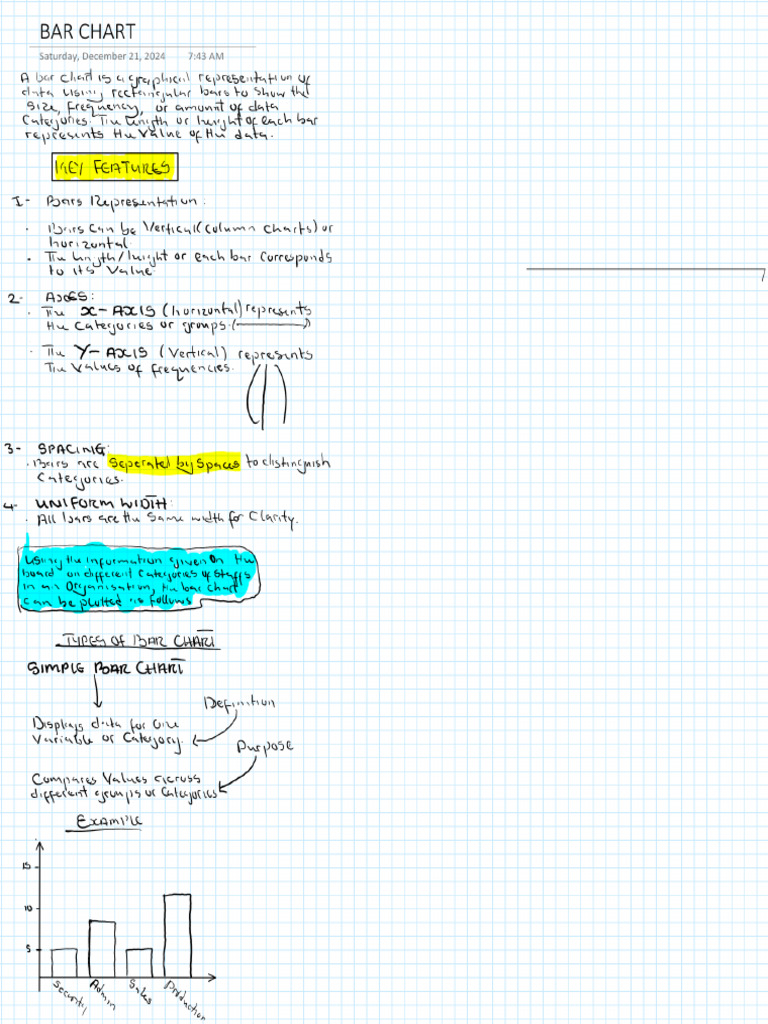 BAR CHART
Saturday, December 21, 2024 7:43 AM
A bar chart is a graphical representation of
data using rectangular bars to show the
size, frequency, or amount of data
Categories. The length or height of each bar
represents the value of the data.
KEY FEATURES
1- Bars Representation:
· Bars can be Vertical (column charts) or
horizontal.
· The length/height or each bar corresponds
to its value.
2- AXES:
· The X-AXIS (horizontal) represents
the categories or groups.
· The Y-AXIS (Vertical) represents
The values of frequencies.
3- SPACING:
· Bars are Seperated by Spaces to distinguish
Categories.
4- UNIFORM WIDTH:
· All bars are the same width for Clarity.
Using the information given on the
board on different categories of staffs
in an Organisation, the bar chart
can be plotted as follows
TYPES OF BAR CHART
SIMPLE BAR CHART
Definition
Displays data for one
Variable or Category.
Purpose
Compares Values across
different groups or Categories
EXAMPLE
15
10
5
Security Admin Sales Production